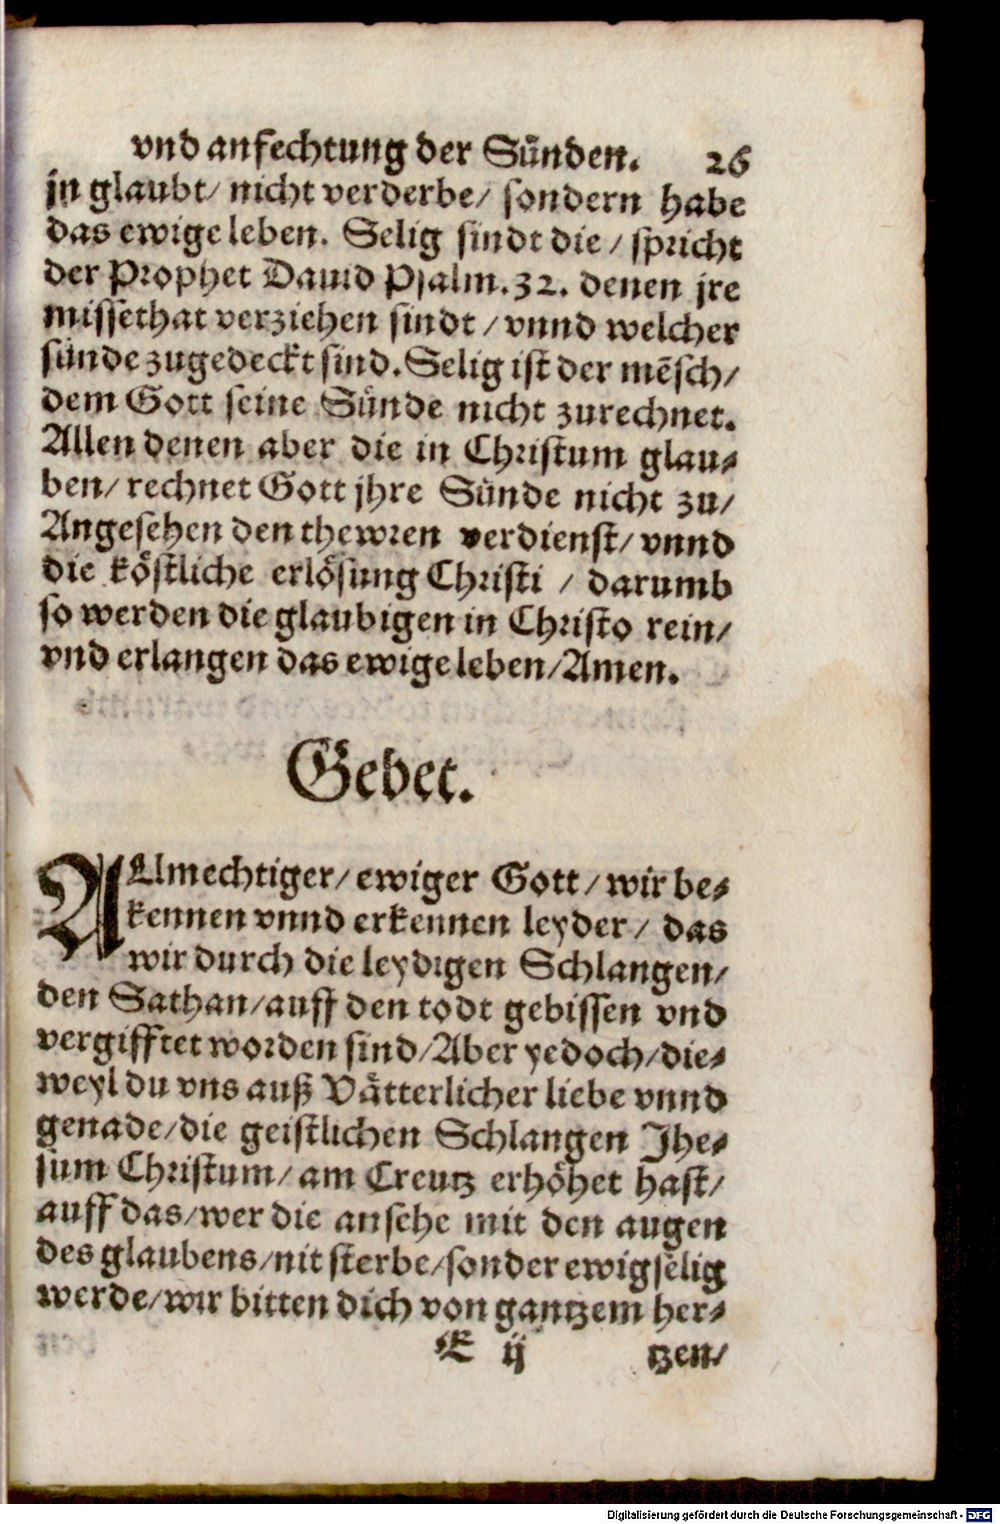 vnd anfechtung der Sünden. 26
jn glaubt/ nicht verderbe/ sondern habe
das ewige leben. Selig sindt die / spricht
der Prophet Dauid Psalm.32. denen jre
missethat verziehen sindt / vnnd welcher
sünde zugedeckt sind. Selig ist der mẽsch/
dem Gott seine Sünde nicht zurechnet.
Allen denen aber die in Christum glau⸗
ben/ rechnet Gott jhre Sünde nicht zu/
Angesehen den thewren verdienst/ vnnd
die köstliche erlösung Christi / darumb
so werden die glaubigen in Christo rein/
vnd erlangen das ewige leben/Amen.
Gebet.
ALlmechtiger/ ewiger Gott/ wir be⸗
kennen vnnd erkennen leyder/ das
wir durch die leydigen Schlangen/
den Sathan/auff den todt gebissen vnd
vergifftet worden sind/Aber yedoch/die⸗
weyl du vns auß Vätterlicher liebe vnnd
genade/die geistlichen Schlangen Jhe⸗
sum Christum/ am Creutz erhöhet hast/
auff das/wer die ansehe mit den augen
des glaubens/nit sterbe/sonder ewig selig
werde/wir bitten dich von gantzem her⸗
E ij tzen/
Digitalisierung gefördert durch die Deutsche Forschungsgemeinschaft - DFG